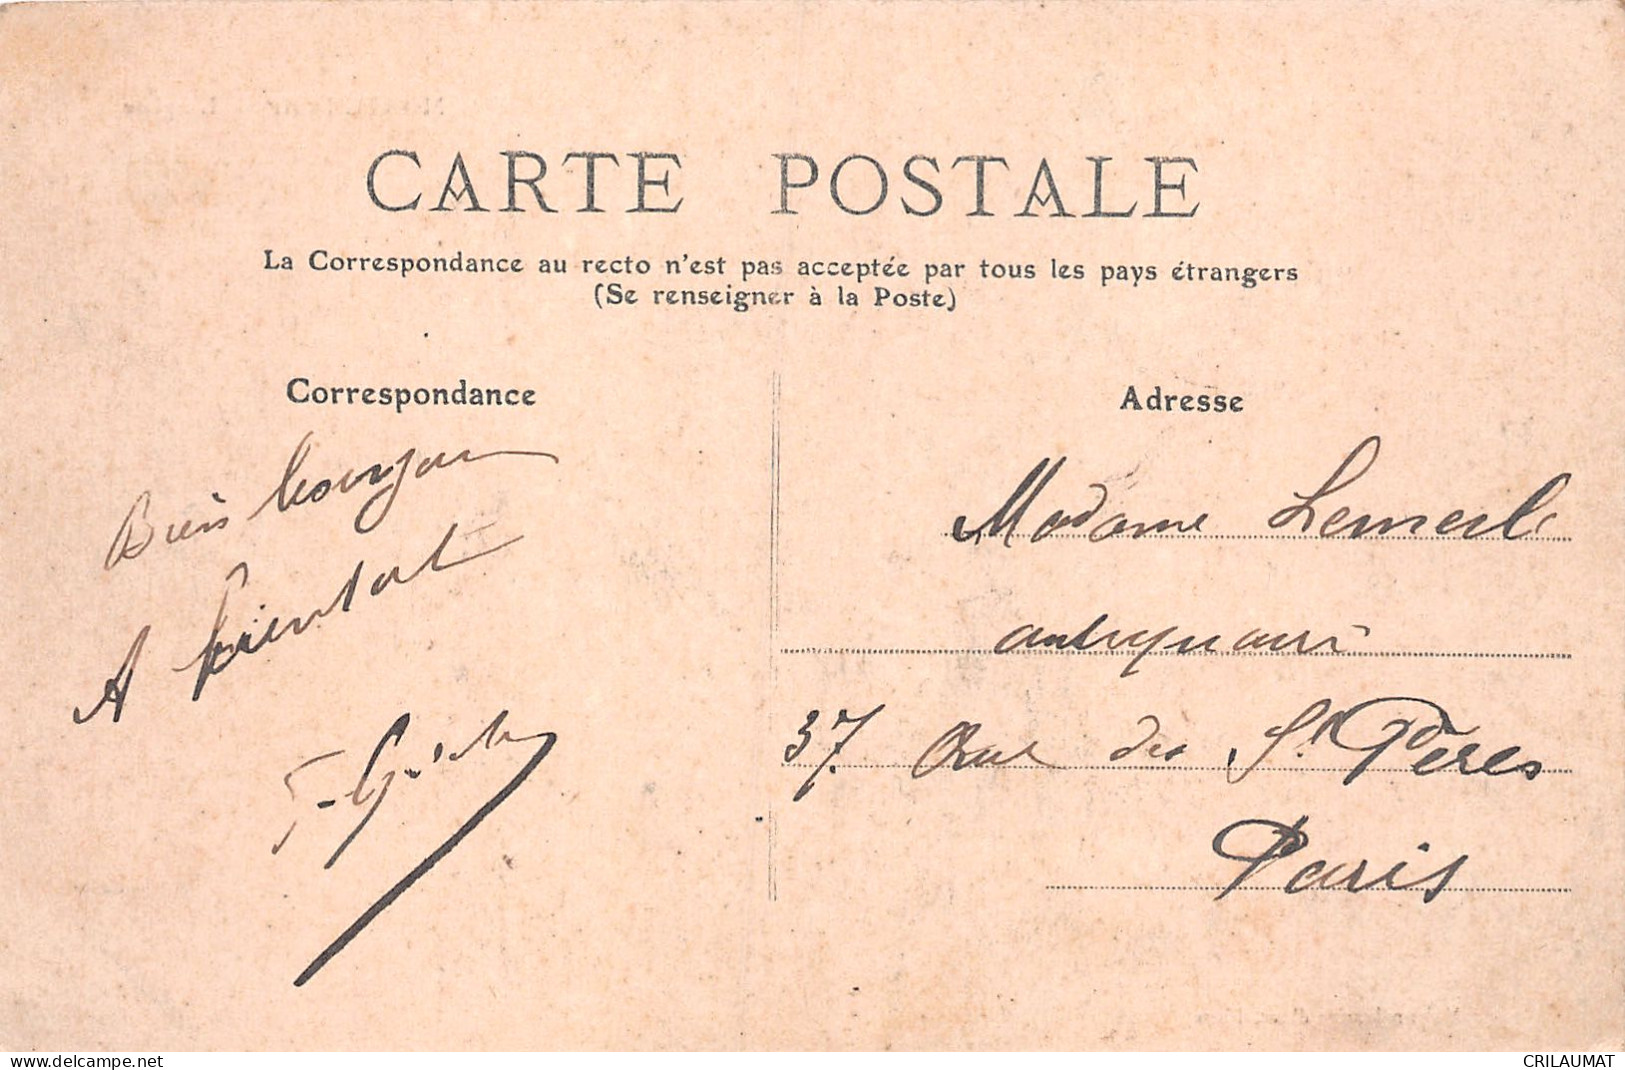 CARTE POSTALE
La Correspondance au recto n'est pas acceptée par tous les pays étrangers
(Se renseigner à la Poste)
Correspondance
Adresse
Bien bonjour
A bientot
Madame Lemerle
antiquaire
37 Rue des St Pères
Paris
www.delcampe.net
CRILAUMAT